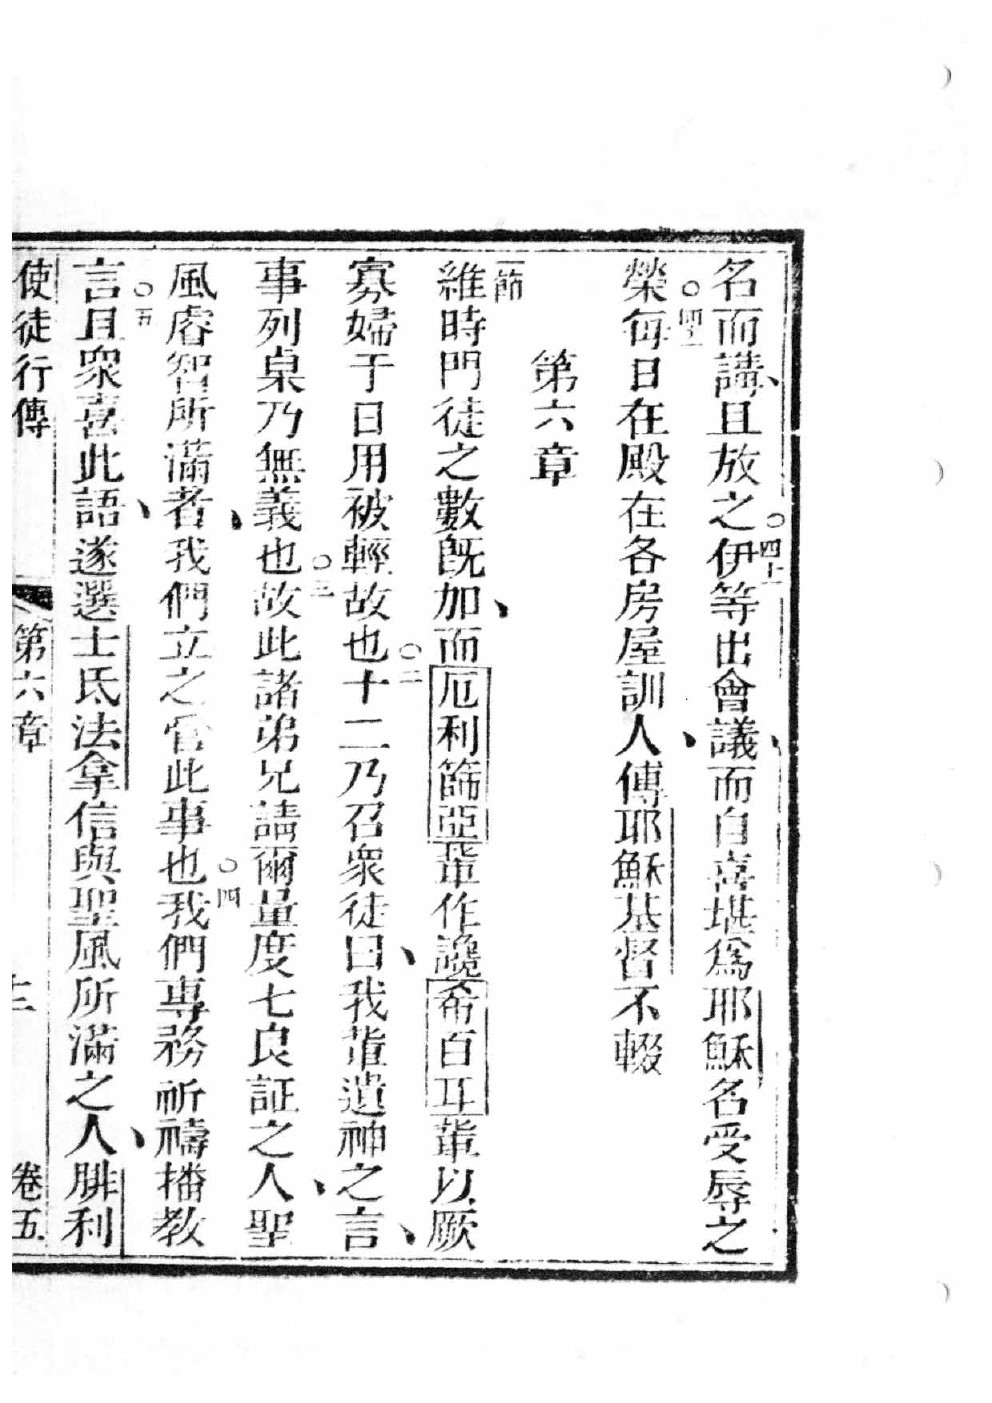 名而講、且放之○四十伊等出會議、而自喜堪爲耶穌名受辱之
榮○四十一每日在殿在各房屋訓人、傳耶穌基督不輟
第六章
一節
維時門徒之數旣加、而厄利篩亞輩作讒希百耳輩以厥
寡婦于日用被輕故也○二十二乃召衆徒曰、我輩遺神之言、
事列桌乃無義也○三故此諸弟兄請爾量度七良証之人、聖
風睿智所滿者、我們立之管此事也○四我們專務祈禱播教
言○五且衆喜此語、遂選士氐法拿信與聖風所滿之人、腓利
使徒行傳 第六章 十二 卷五